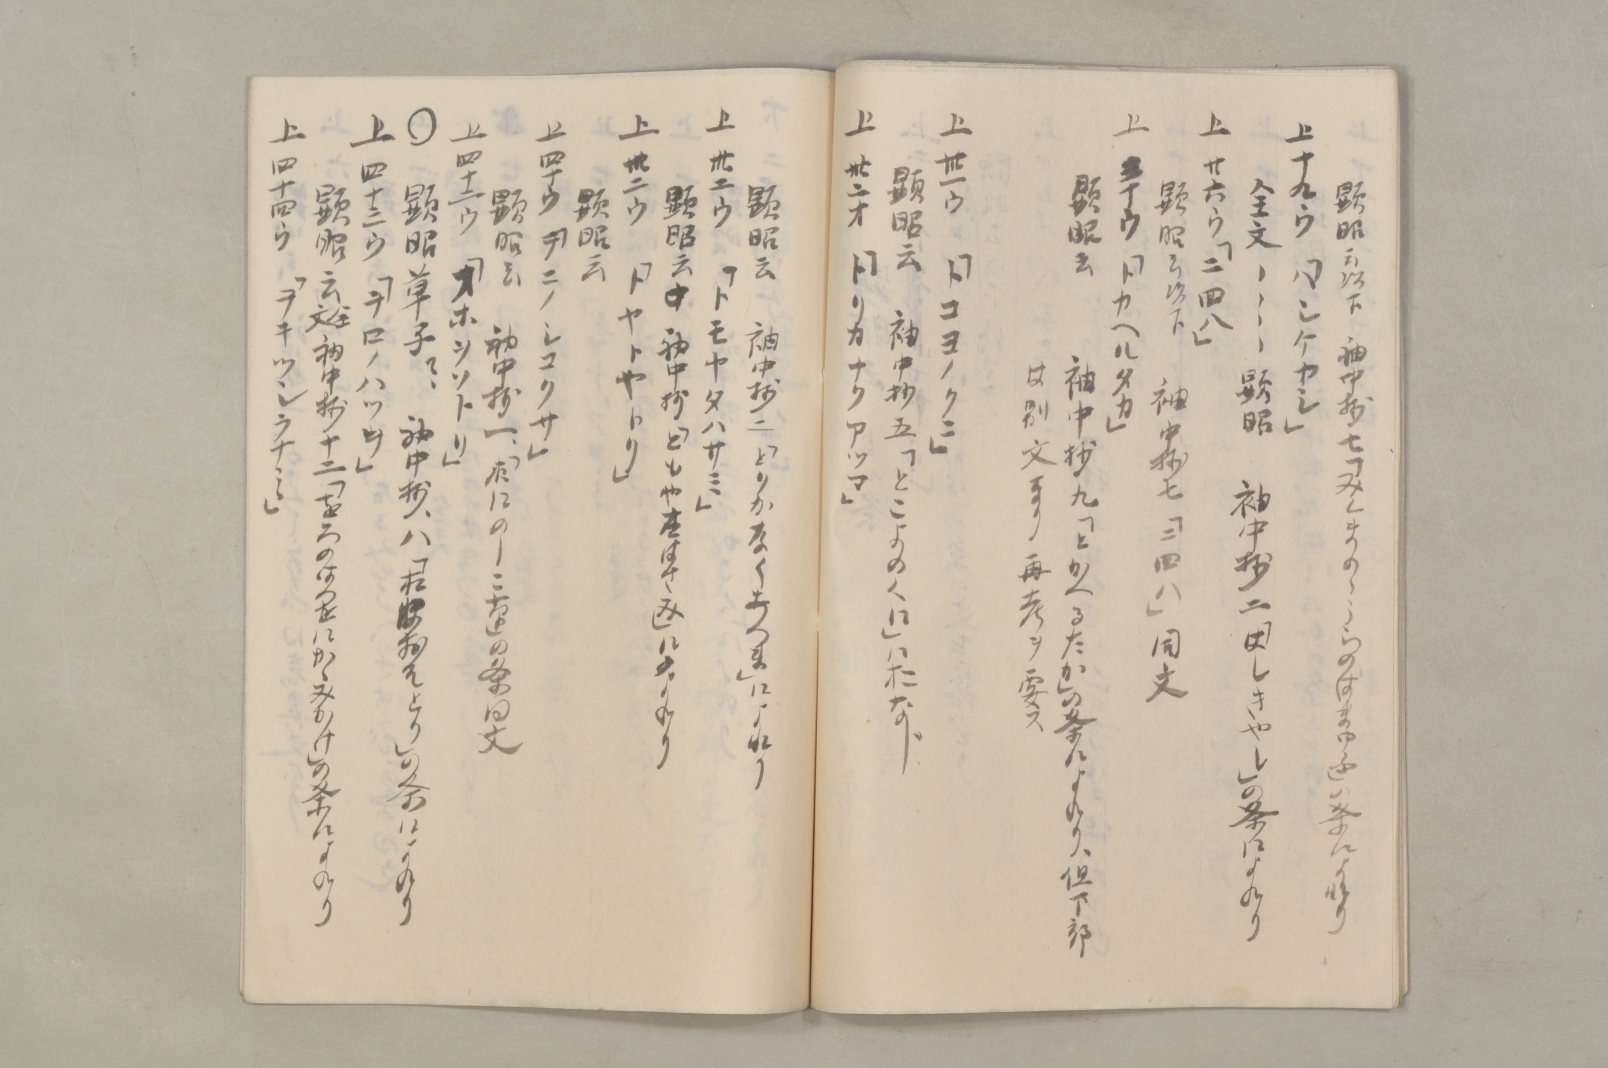 顕昭云以下 袖中抄七「みくまのゝうらのはまゆふ」の条によれり
上 十九ウ 「ハシケヤシ」
全文ーーーー 顕昭 袖中抄二「はしきやし」の条によれり
上 廿六ウ 「二四八」
顕昭云以下 袖中抄七「三四八」同文
上 三十ウ 「トカヘルタカ」
顕昭云 袖中抄九「とかへるたか」の条によれり、但下部
は別文なり 再考ヲ要ス
上 卅一ウ 「トコヨノクニ」
顕昭云 袖中抄五「とこよのくに」に於なじ
上 卅二オ 「トリカナクアツマ」
顕昭云 袖中抄二「とりかなくあつま」によれり
上 卅二ウ 「トモヤタハサミ」
顕昭云 袖中抄「ともやたはさみ」によれり
上 卅二ウ 「トヤトヤトリ」
顕昭云
上 四十ウ 「ヲニノシコクサ」
顕昭云 袖中抄一、「おにのしこ草」の条同文
上 四十二ウ 「オホツソトリ」
〇 顕昭草子云 袖中抄、八「おほおそとり」の条によれり
上 四十三ウ 「ヲロノハツヲ」
顕昭云全文 袖中抄十二「をろのはつをにかゝみかけ」の条によれり
上 四十四ウ 「ヲキツシラナミ」